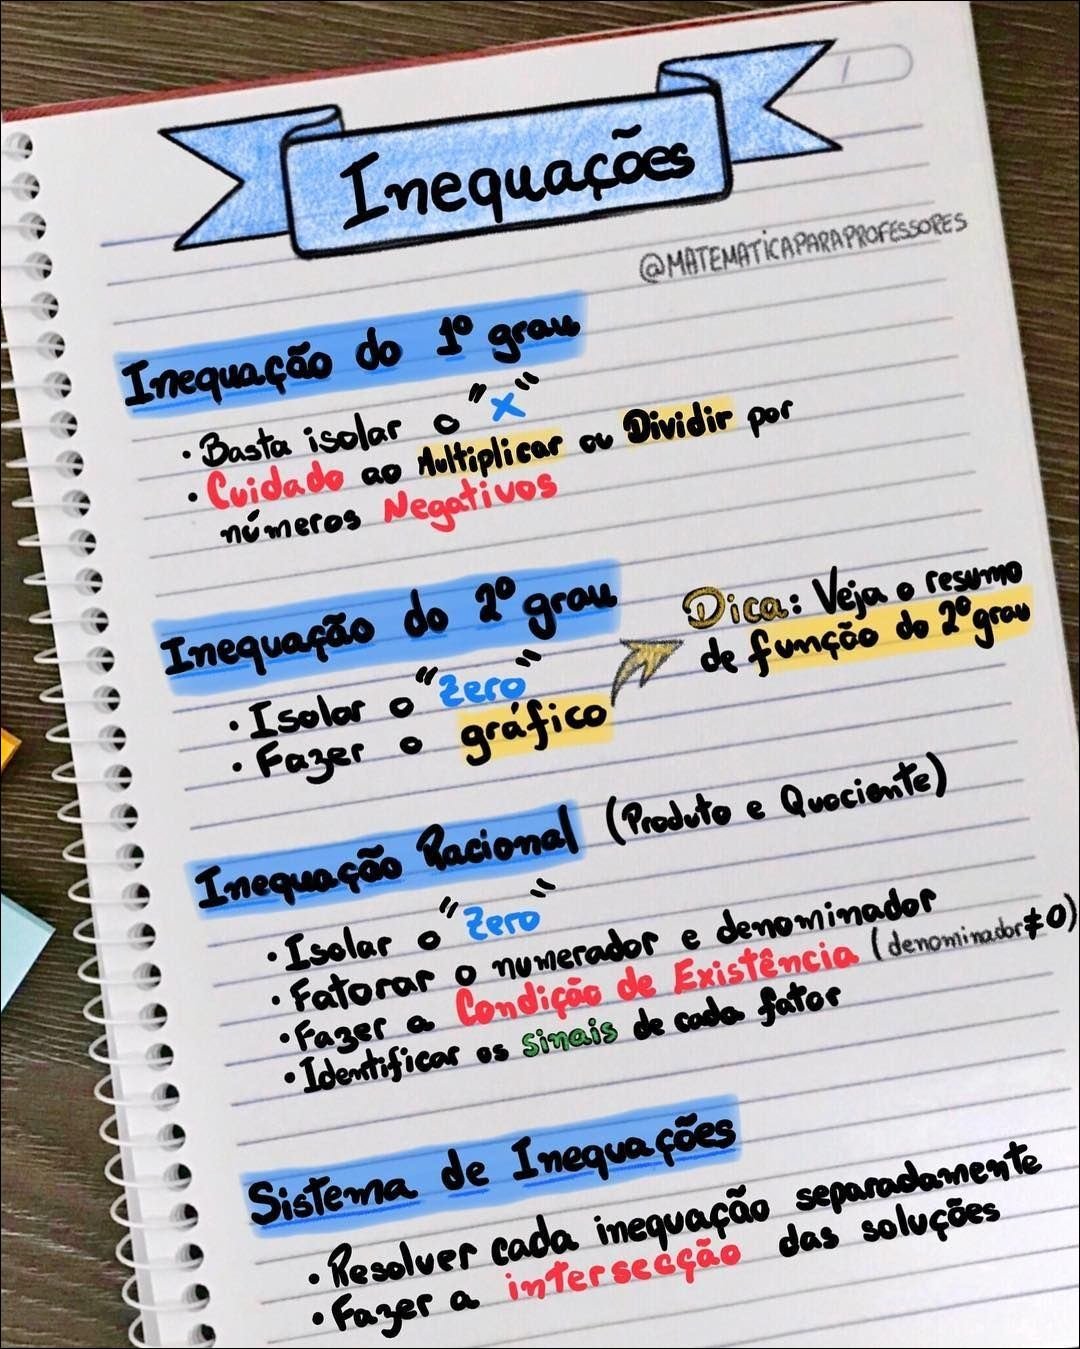 Inequações
@MATEMATICAPARAPROFESSORES
Inequação do 1º grau
• Basta isolar o "x"
• Cuidado ao Multiplicar ou Dividir por
números Negativos
Inequação do 2º grau
• Isolar o "Zero"
• Fazer o gráfico
Dica: Veja o resumo
de função do 2º grau
Inequação Racional (Produto e Quociente)
• Isolar o "Zero"
• Fatorar o numerador e denominador
• Fazer a Condição de Existência (denominador ≠ 0)
• Identificar os sinais de cada fator
Sistema de Inequações
• Resolver cada inequação separadamente
• Fazer a intersecção das soluções